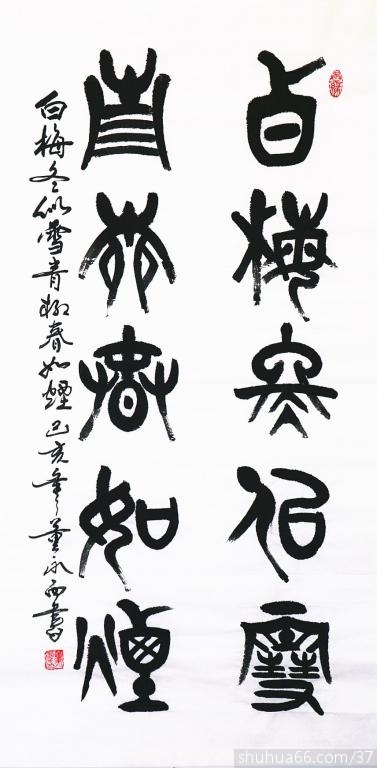 白梅冬似雪
青柳春如煙
白梅冬似雪青柳春如煙己亥年董永西書
shuhua66.com/37